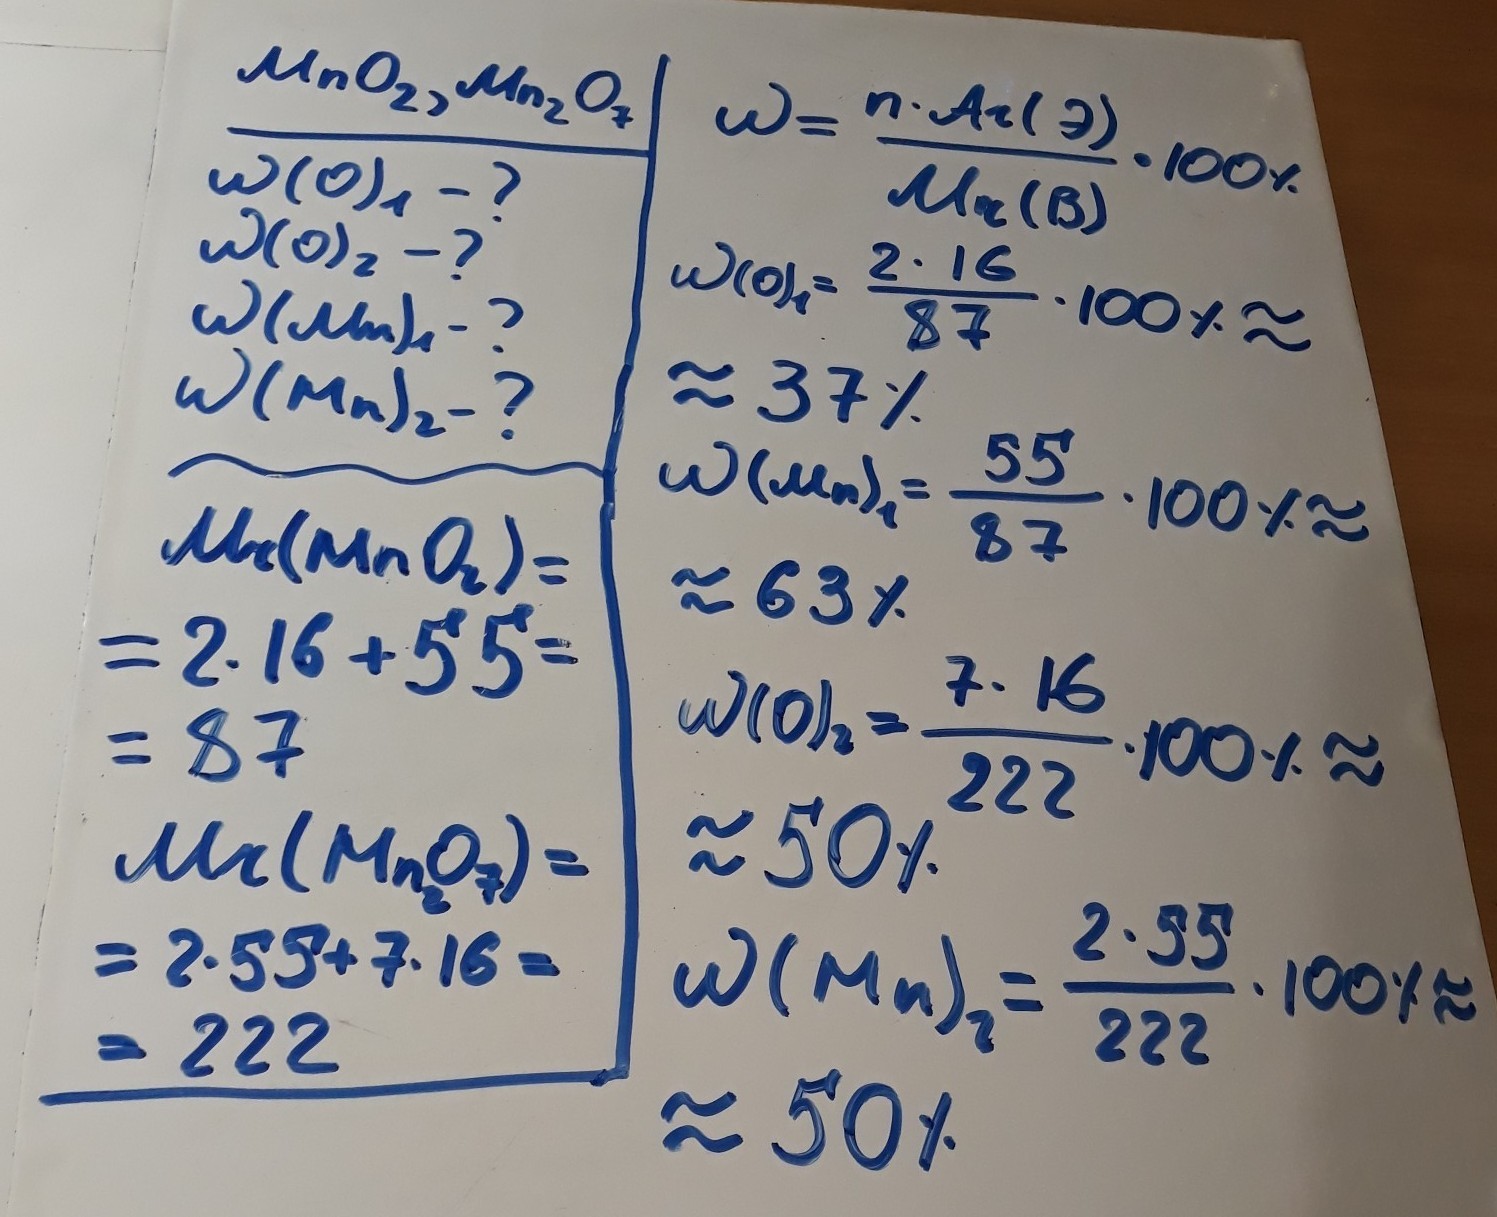 MnO₂, Mn₂O₇
W(O)₁ - ?
W(O)₂ - ?
W(Mn)₁ - ?
W(Mn)₂ - ?
Mr(MnO₂) =
= 2·16 + 55 =
= 87
Mr(Mn₂O₇) =
= 2·55 + 7·16 =
= 222
W = n·Ar(Э) / Mr(В) · 100%
W(O)₁ = 2·16 / 87 · 100% ≈
≈ 37%
W(Mn)₁ = 55 / 87 · 100% ≈
≈ 63%
W(O)₂ = 7·16 / 222 · 100% ≈
≈ 50%
W(Mn)₂ = 2·55 / 222 · 100% ≈
≈ 50%